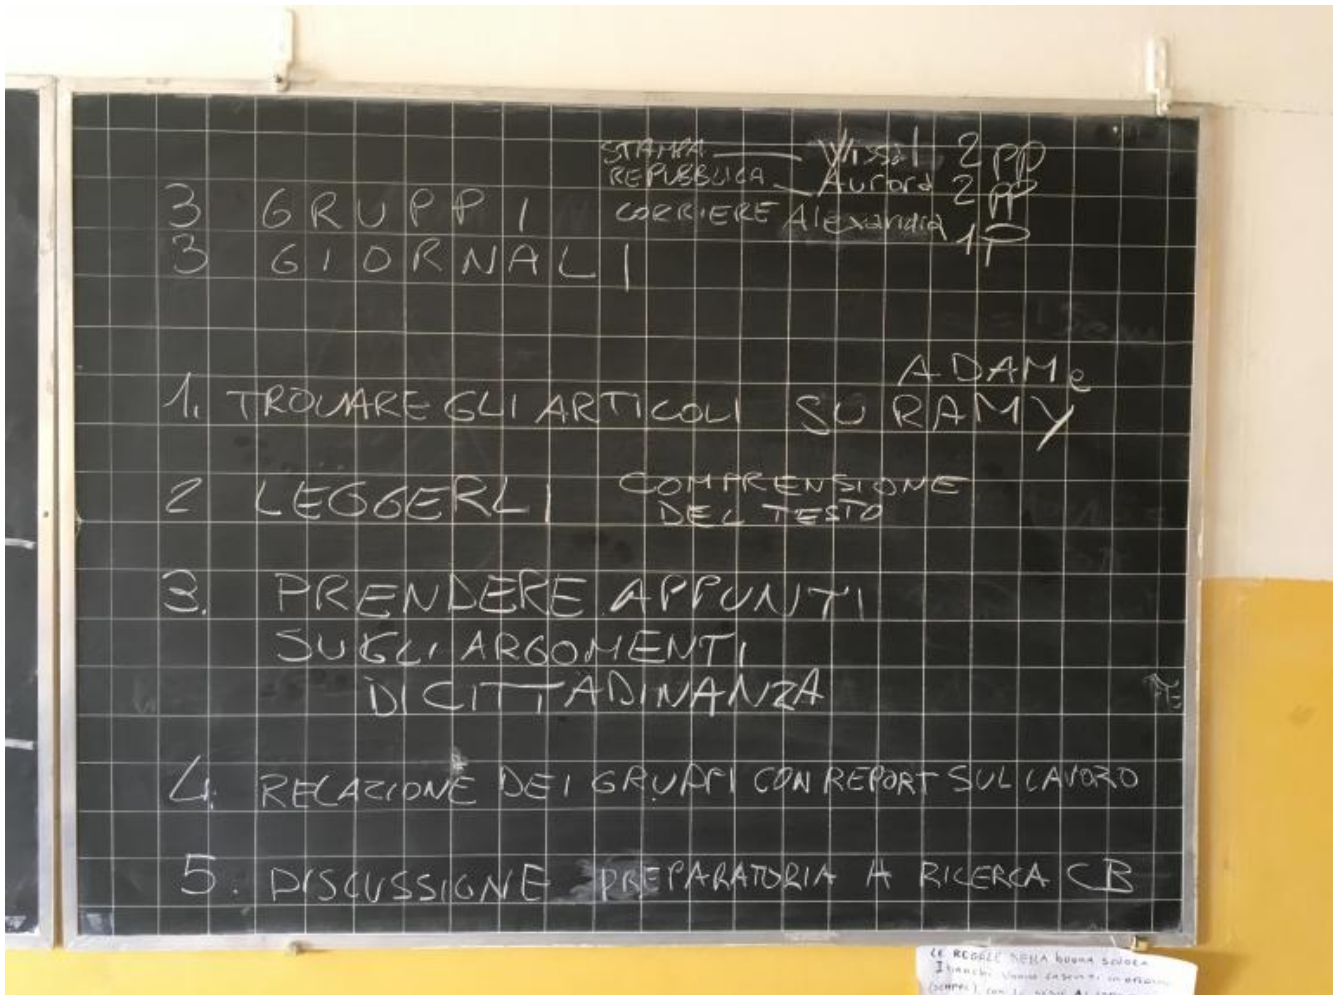 STAMPA Wissal 2 PP
REPUBBLICA Aurora 2 PP
3 GRUPPI CORRIERE Alexandra 1P
3 GIORNALI
ADAM e
1. TROVARE GLI ARTICOLI SU RAMY
2 LEGGERLI COMPRENSIONE
DEL TESTO
3. PRENDERE APPUNTI
SUGLI ARGOMENTI
DI CITTADINANZA
4. RELAZIONE DEI GRUPPI CON REPORT SUL LAVORO
5. DISCUSSIONE PREPARATORIA A RICERCA CB
LE REGOLE DELLA buona scuola